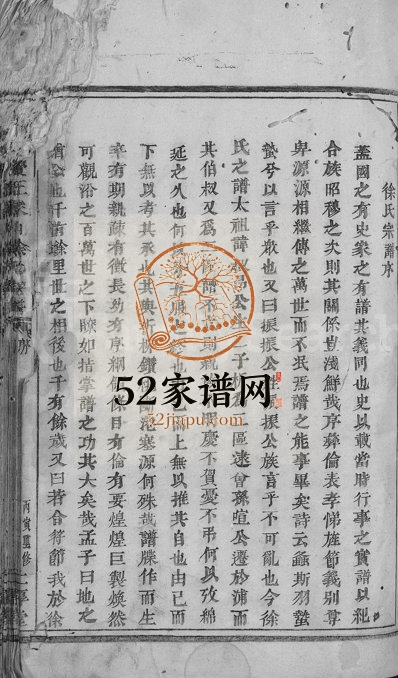 徐氏宗譜序
蓋國之有史家之有譜其義同也史以載當時行事之實譜以紀
合族昭穆之次則其關係豈淺鮮哉序彝倫表孝悌旌節義別尊
卑源源相繼傳之萬世而不泯焉譜之能事畢矣詩云螽斯羽蟄
蟄兮以言乎衆也又曰振振公生振振公族言乎不可亂也今徐
氏之譜太祖諱 公生 子 區遠會孫暄公遷於浦而
其伯叔又爲 修譜不 則親 慶不賀憂不弔何以攷綿
延之久也何 服 也 上無以推其自也由已而
下無以考其承也其與斫 鑽 塞源何殊哉譜牒作而生
卒有期親疎有徵長幼有序綱 日有倫有要煌煌巨製煥然
可觀沿之百萬世之下瞭如指掌譜之功其大矣哉孟子曰地之
相去也千有餘里世之相後也千有餘歲又曰若合符節我於徐
丙寅重修
52家谱网
52jiapu.com